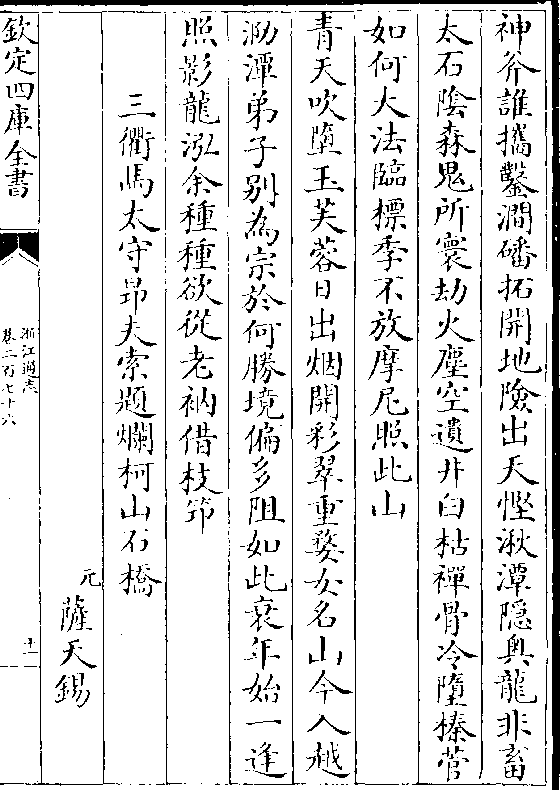 神斧誰攜鑿澗磻拓開地險出天慳湫潭隱奥龍非畜
太石陰森鬼所寰劫火塵空遺井臼枯禪骨冷墮榛菅
如何大法臨標季不放摩尼照此山
青天吹墮玉芙蓉日出烟開彩翠重婺女名山今入越
泐潭弟子别為宗於何勝境偏多阻如此衰年始一逢
照影龍泓余種種欲從老衲借枝筇
三衢馬太守昂夫索題爛柯山石橋
元 薩天錫
欽定四庫全書
浙江通志
卷二百七十六
十一